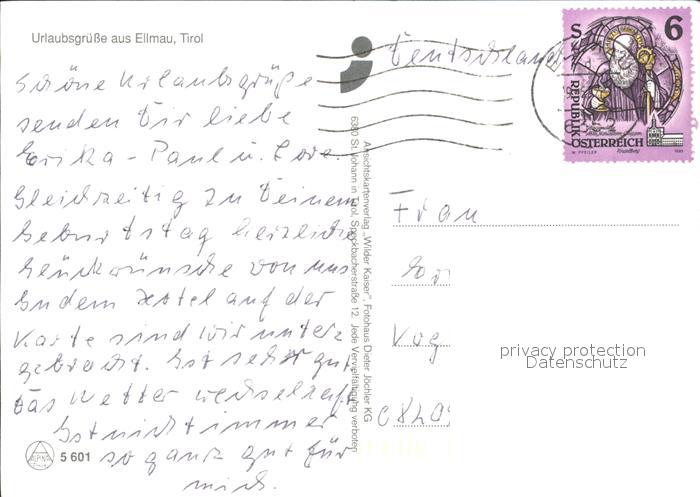 Urlaubsgrüße aus Ellmau, Tirol
Schöne Urlaubsgrüße
senden Dir liebe
Erika - Paul u.
Gleichzeitig zu Deinem
Geburtstag herzliche
Glückwünsche von uns
In dem Hotel auf der
Karte sind wir unterz
gebracht. Ist sehr gut
Das Wetter wechselhaft
Ist nicht immer
so ganz gut für
mich.
5 601
Ansichtskartenverlag „Wilder Kaiser", Fotohaus Dieter Jöchler KG
6380 St. Johann in Tirol, Speckbacherstraße 12. Jede Vervielfältigung verboten
Deutschland
S 6
REPUBLIK
ÖSTERREICH
Frau
Vog
privacy protection
Datenschutz